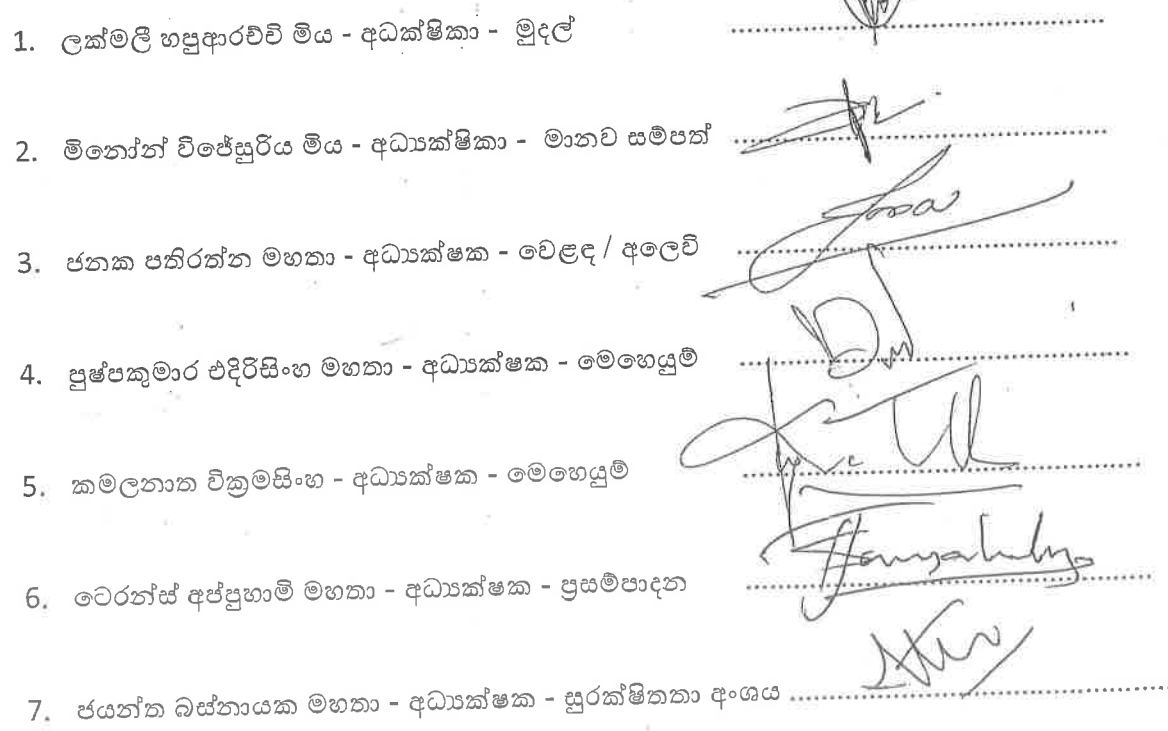 1. ලක්මලී හපුආරච්චි මිය - අධක්ෂිකා - මුදල්
2. මිනෝන් විජේසුරිය මිය - අධ්‍යක්ෂිකා - මානව සම්පත්
3. ජනක පතිරත්න මහතා - අධ්‍යක්ෂක - වෙළඳ / අලෙවි
4. පුෂ්පකුමාර එදිරිසිංහ මහතා - අධ්‍යක්ෂක - මෙහෙයුම්
5. කමලනාත වික්‍රමසිංහ - අධ්‍යක්ෂක - මෙහෙයුම්
6. ටෙරන්ස් අප්පුහාමි මහතා - අධ්‍යක්ෂක - ප්‍රසම්පාදන
7. ජයන්ත බස්නායක මහතා - අධ්‍යක්ෂක - සුරක්ෂිතතා අංශය